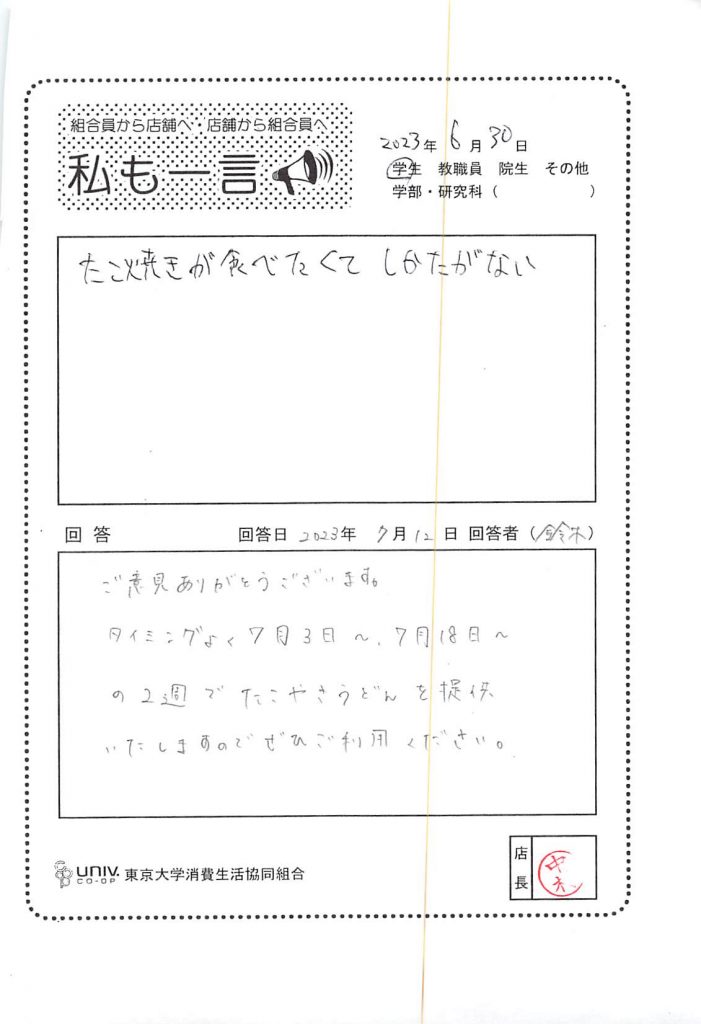 組合員から店舗へ・店舗から組合員へ
私も一言
2023年 6月 30日
学生 教職員 院生 その他
学部・研究科（　　　　）
たこ焼きが食べたくて しかたがない
回答 回答日 2023年 7月12日 回答者（鈴木）
ご意見ありがとうございます。
タイミングよく7月3日～、7月18日～
の2週でたこやきうどんを提供
いたしますのでぜひご利用ください。
UNIV. CO-OP 東京大学消費生活協同組合
店長